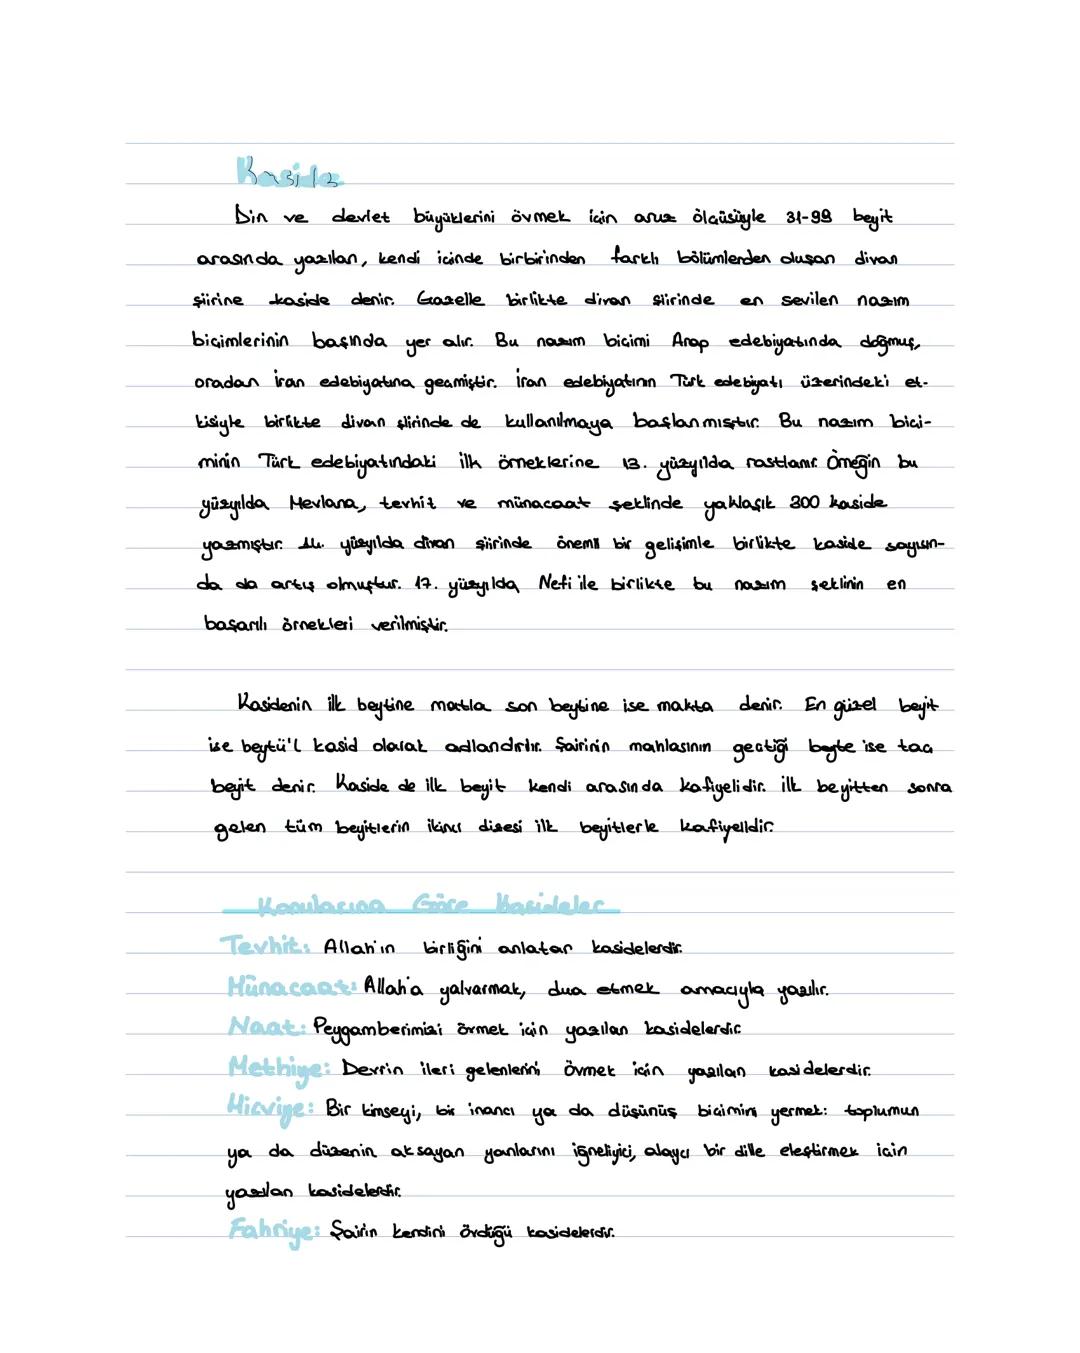 Kaside
Din ve devlet büyüklerini övmek için aruz ölçüsüyle 31-99 beyit
arasında yazılan, kendi içinde birbirinden farklı bölümlerden oluşan divan
şiirine kaside denir. Gazelle birlikte divan şiirinde en sevilen nazım
biçimlerinin başında yer alır. Bu nazım biçimi Arap edebiyatında doğmuş,
oradan İran edebiyatına geçmiştir. İran edebiyatının Türk edebiyatı üzerindeki et-
kisiyle birlikte divan şiirinde de kullanılmaya başlanmıştır. Bu nazım biçi-
minin Türk edebiyatındaki ilk örneklerine 13. yüzyılda rastlanır. Örneğin bu
yüzyılda Mevlana, tevhit ve münacaat şeklinde yaklaşık 300 kaside
yazmıştır. 14. yüzyılda divan şiirinde önemli bir gelişimle birlikte kaside sayısın-
da da artış olmuştur. 17. yüzyılda Nefi ile birlikte bu nazım şeklinin en
başarılı örnekleri verilmiştir.
Kasidenin ilk beytine matla son beytine ise makta denir. En güzel beyit
ise beytü'l kasid olarak adlandırılır. Şairinin mahlasının geçtiği beyte ise tac
beyit denir. Kaside de ilk beyit kendi arasında kafiyelidir. İlk beyitten sonra
gelen tüm beyitlerin ikinci dizesi ilk beyitlerle kafiyelidir.
Konularına Göre Kasideler
Tevhit: Allah'ın birliğini anlatan kasidelerdir.
Münacaat: Allah'a yalvarmak, dua etmek amacıyla yazılır.
Naat: Peygamberimizi övmek için yazılan kasidelerdir.
Methiye: Devrin ileri gelenlerini övmek için yazılan kasidelerdir.
Hicviye: Bir kimseyi, bir inancı ya da düşünüş biçimini yermek: toplumun
ya da düzenin aksayan yanlarını iğneliyici, alaycı bir dille eleştirmek için
yazılan kasidelerdir.
Fahriye: Şairin kendini övdüğü kasidelerdir.